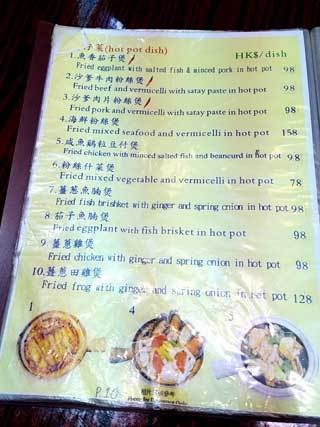 子菜(hot pot dish) HK$/dish
1.魚香茄子煲
Fried eggplant with salted fish & minced pork in hot pot 98
2.沙爹牛肉粉絲煲
Fried beef and vermicelli with satay paste in hot pot 98
3.沙爹肉片粉絲煲
Fried pork and vermicelli with satay paste in hot pot 98
4.海鮮粉絲煲
Fried mixed seafood and vermicelli in hot pot 158
5.咸魚鷄粒豆付煲
Fried chicken with minced salted fish and beancurd in hot pot 98
6.粉絲什菜煲
Fried mixed vegetable and vermicelli in hot pot 78
7.薑葱魚腩煲
Fried fish brishket with ginger and spring onion in hot pot 98
8.茄子魚腩煲
Fried eggplant with fish brisket in hot pot 98
9.薑葱雞煲
Fried chicken with ginger and spring onion in hot pot 98
10.薑葱田雞煲
Fried frog with ginger and spring onion in hot pot 128
1 4 5
P.10